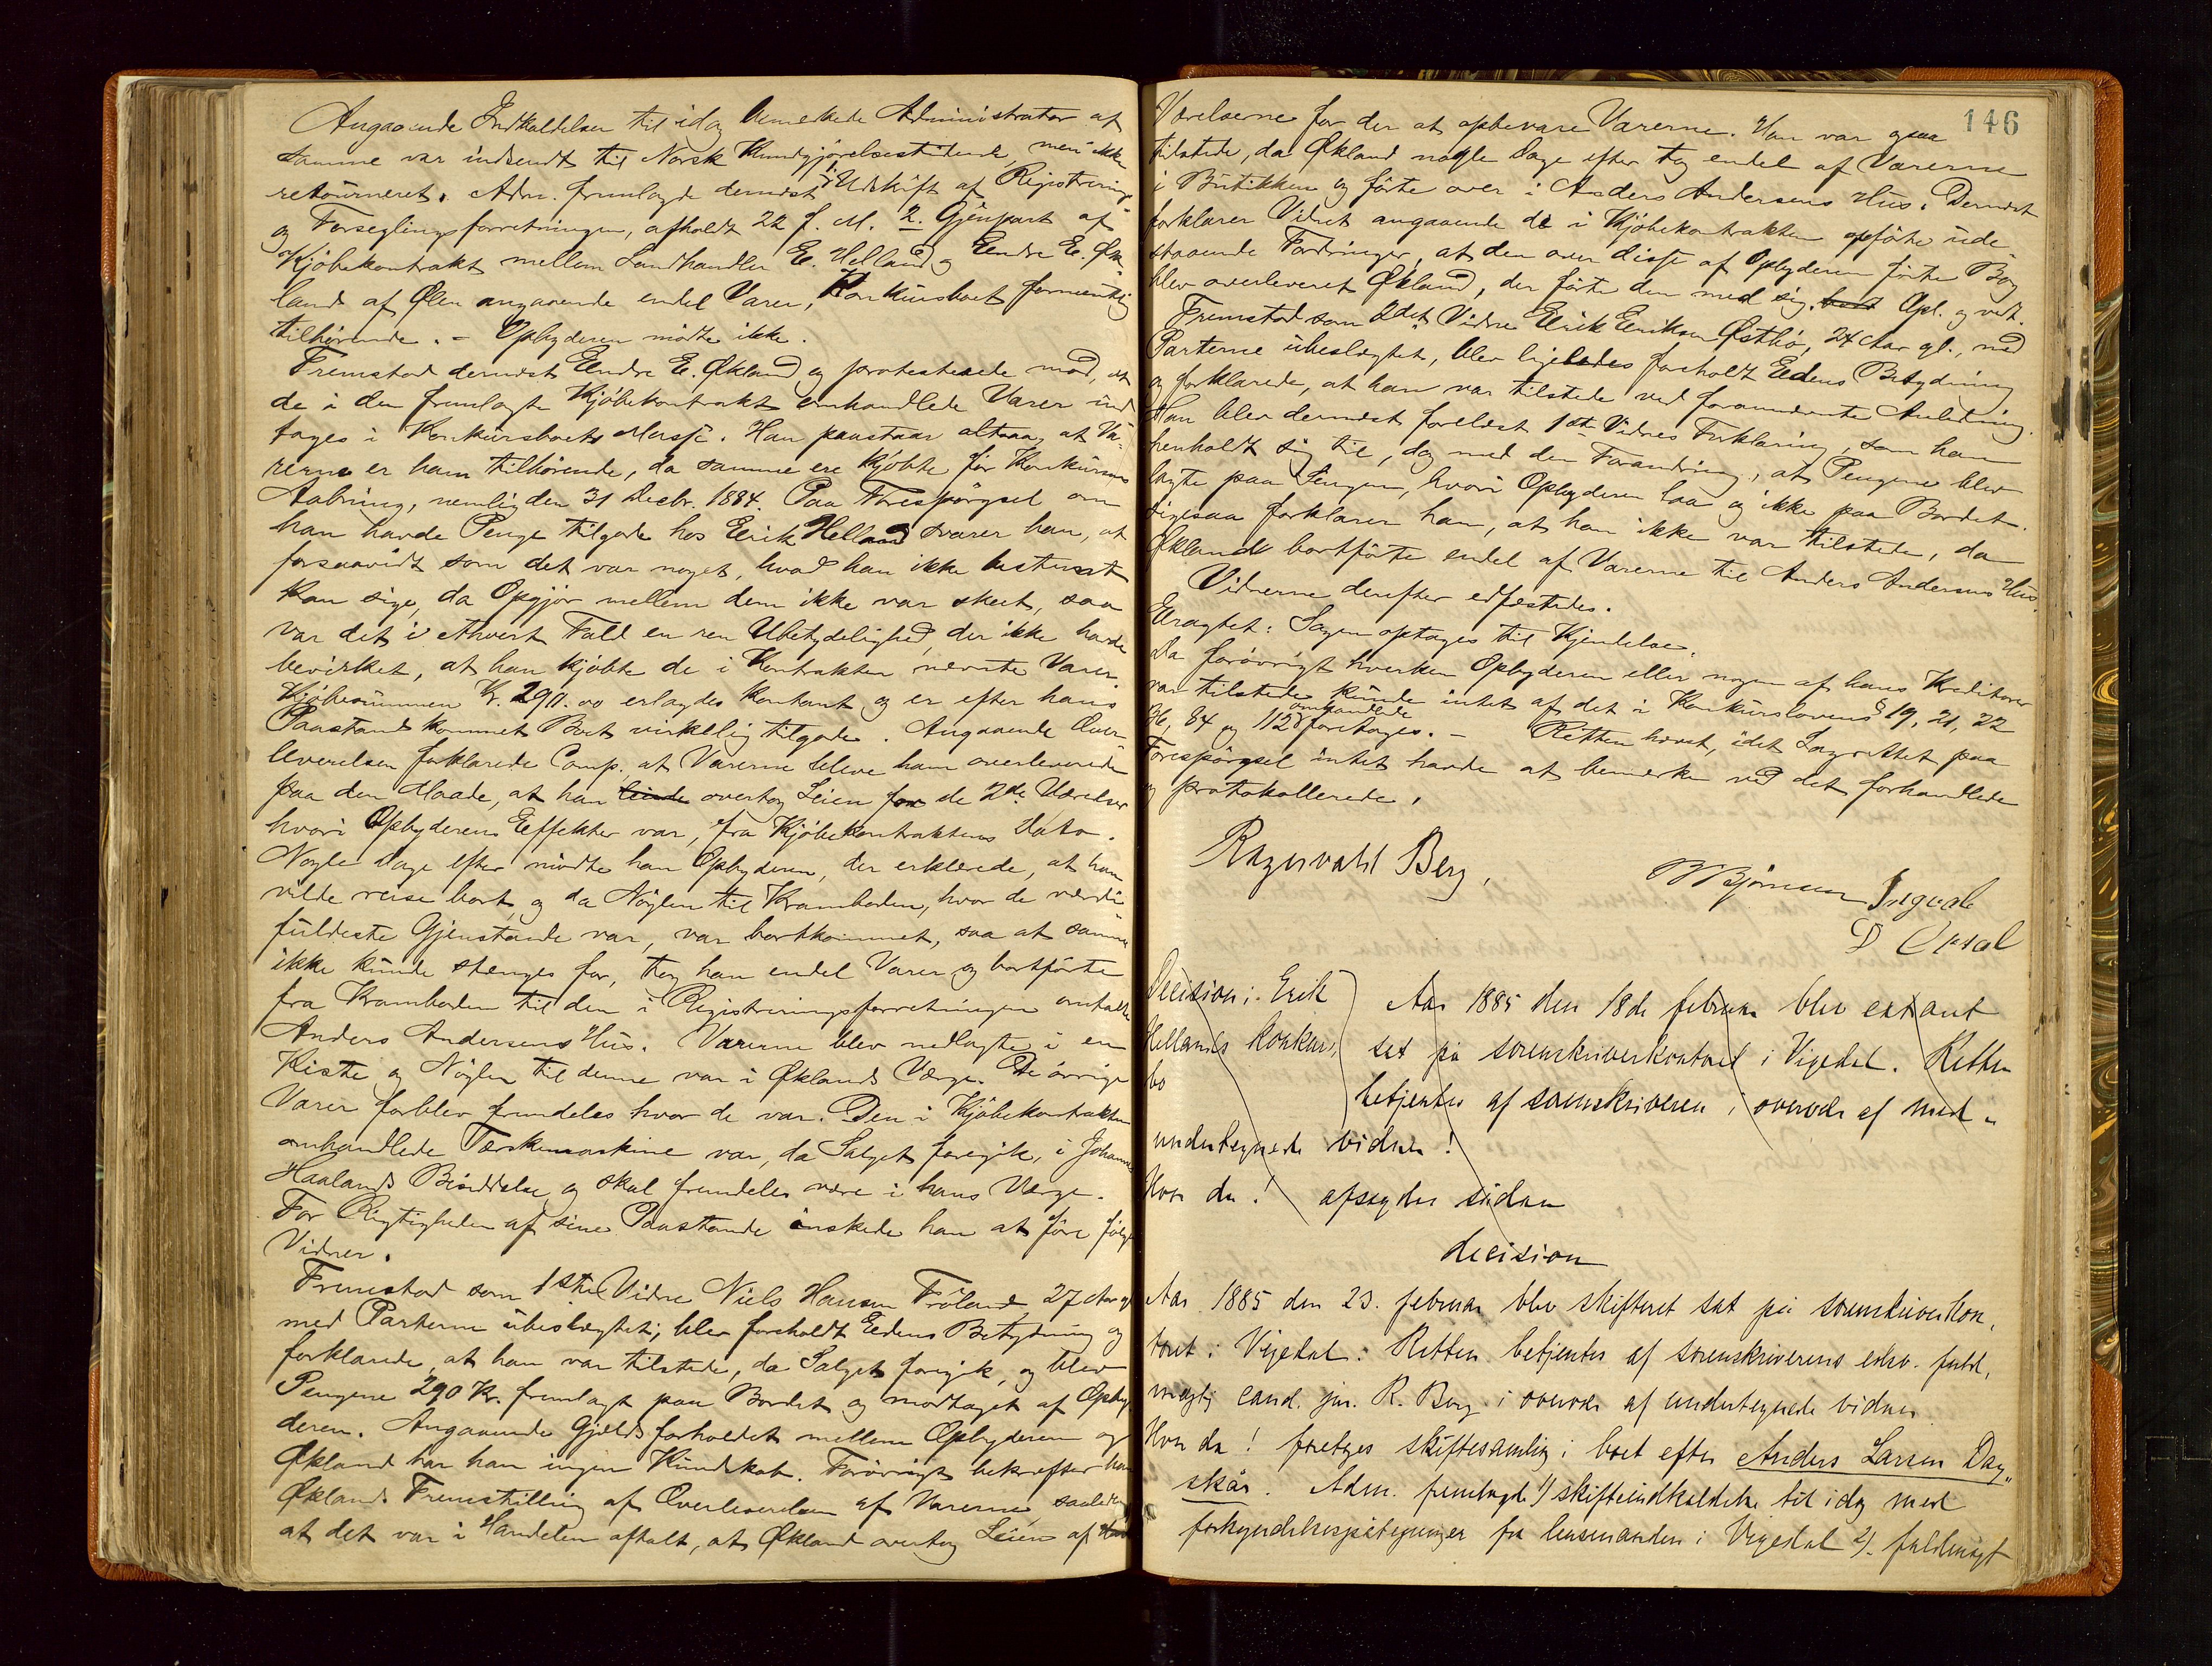 Angaaende Indkaldelsen til idag bemerkede Administrator at
samme var indsendt til Norsk Kundgjörelsestidende, men ikke
retourneret. Adm. fremlagde dernæst 1. Udskrift af Registrerings
og Forseglingsforretningen, afholdt 22 f. M. 2. Gjenpart af
Kjöbekontrakt mellem Landhandler E. Helland og Eendre E. Øk-
land af Ølen angaaende endel Varer, Konkursboet formentlig
tilhörende. - Opbyderen mödte ikke.
Fremstod dernæst Eendre E. Økland og protesterede mod, at
de i den fremlagte Kjöbekontrakt omhandlede Varer ind
tages i Konkursboets Masse. Han paastaar altsaa, at Va-
rerne er ham tilhörende, da samme ere kjöbte för Konkursens
Aabning, nemlig den 31 Decbr. 1884. Paa Forespörgsel om
han havde Penge tilgode hos Eerik Helland svarer han, at
forsaavidt som det var noget, hvad han ikke bestemt
kan sige, da Opgjör mellem dem ikke var skeet, saa
var det i ethvert Fald en ren Ubetydelighed, der ikke havde
bevirket, at han kjöbte de i Kontrakten nævnte Varer.
Kjöbesummen Kr. 290.00 erlagdes kontant og er efter hans
Paastand kommet Boet virkelig tilgode. Angaaende Over-
leverelsen forklarede Comp. at Varerne bleve ham overleverede
paa den Maade, at han overtog Leien for de 2de Værelser
hvori Opbyderens Eeffekter var, fra Kjöbekontraktens Dato.
Nogle Dage efter mödte han Opbyderen, der erklærede, at han
vilde reise bort, og da Nöglen til Kramboden, hvor de værdi
fuldeste Gjenstande var, var bortkommet, saa at samme
ikke kunde stenges for, tog han endel Varer og bortförte
fra Kramboden til den i Registreringsforretningen omtalte
Anders Andersens Hus. Varerne blev nedlagte i en
Kiste og Nöglen til denne var i Øklands Værge. De övrige
Varer forblev fremdeles hvor de var. Den i Kjöbekontrakten
omhandlede Tærskemaskine var, da Salget foregik, i Johannes
Haalands Besiddelse og skal fremdeles være i hans Værge.
For Rigtigheden af sine Paastande önskede han at före fölg.
Vidner.
Fremstod som 1ste Vidne Niels Hansen Fröland, 27 Aar gl.
med Parterne ubeslægtet; blev foreholdt Eedens Betydning og
forklarede, at han var tilstede, da Salget foregik, og blev
Pengene 290 Kr. fremlagt paa Bordet og modtaget af Opby-
deren. Angaaende Gjældsforholdet mellem Opbyderen og
Økland har han ingen Kundskab. Forövrigt bekræfter han
Øklands Fremstilling af Overleverelsen af Varerne, saaledes
at det var i Handelen aftalt, at Økland overtog Leien af
146
Værelserne for der at opbevare Varerne. Han var ogsaa
tilstede, da Økland nogle Dage efter tog endel af Varerne
i Butikken og förte over i Anders Andersens Hus. Dernæst
forklarer Vidnet angaaende de i Kjöbekontrakten opförte ude
staaende Fordringer, at den over disse af Opbyderen förte Bog
blev overleveret Økland, der förte den med sig. Opl. og vedt.
Fremstod som 2det Vidne Eerik Eeriksen Østbö, 24 Aar gl., med
Parterne ubeslægtet, blev ligeledes foreholdt Eedens Betydning
og forklarede, at han var tilstede ved foranmeldte Anledning.
Han blev dernæst forelæst 1ste Vidnes Forklaring, som han
henholdt sig til, dog med den Forandring, at Pengene blev
lagte paa Sengen, hvori Opbyderen laa og ikke paa Bordet.
Ligesaa forklarer han, at han ikke var tilstede, da
Økland bortförte endel af Varerne til Anders Andersens Hus.
Vidnerne derefter edfæstedes.
Eragtet: Sagen optages til Kjendelse.
Da forövrigt hverken Opbyderen eller nogen af hans Kreditorer
var tilstede, kunde intet af det i Konkurslovens § 19, 21, 22
36, 84 og 112 omhandlede foretages. - Retten hævet, idet Lagrettet paa
Forespörgsel intet havde at bemerke ved det forhandlede
og protokollerede.
Ragnvald Berg,
B Bjørnsen Ingvald
D
Decision i Erik
Hellands konkurs
bo
Aar 1885 den 18de februar blev extraret
sat på sorenskriverkontoret i Vigedal. Retten
betjentes af sorenskriveren i overvær af med
undertegnede vidner!
Hvor da! afsagdes sådan
decision
Aar 1885 den 23. februar blev skifteret sat på sorenskriverkon,
toret i Vigedal: Retten betjentes af sorenskriverens edsv. fuld,
mægtig cand. jur. R. Berg i overvær af undertegnede vidner
Hvor da! foretoges skiftesamling i boet efter Anders Larsen Dag,,
skår. Adm. fremlagde 1/ skifteindkaldelse til idag med
forkyndelsespåtegninger fra lensmanden i Vigedal 2/. fuldmagt